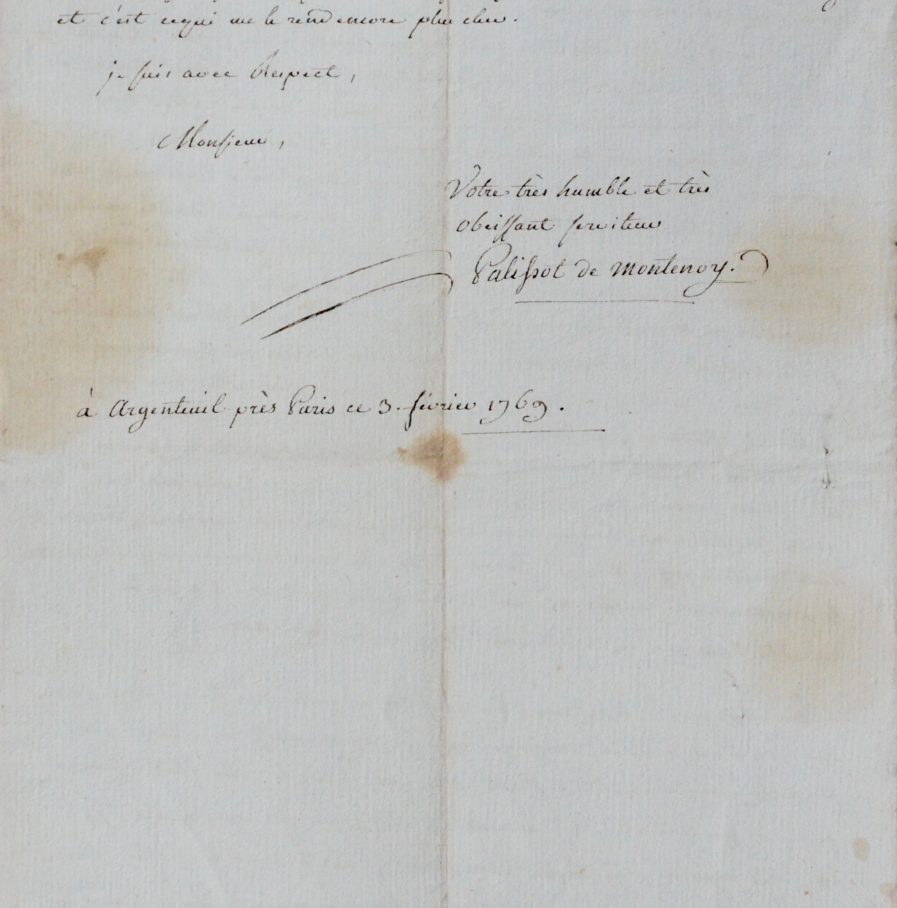 et c'est cequi me le rend encore plus cher.
je suis avec Respect,
Monsieur,
Votre très humble et très
obeissant serviteur
Palissot de Montenoy.
à Argenteuil près Paris ce 3. février 1769.